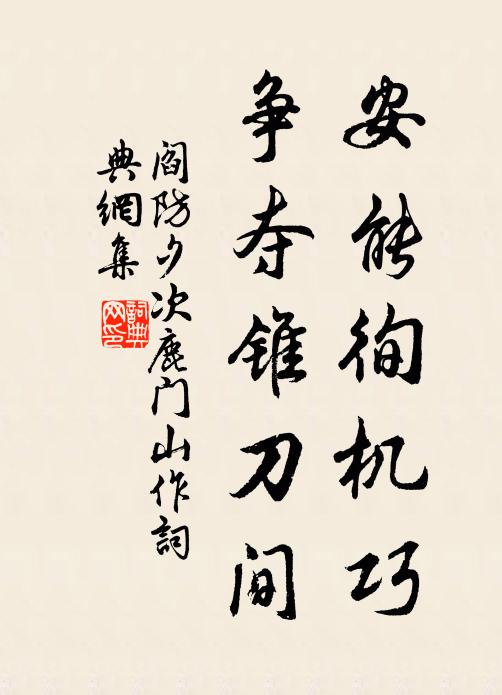 安能徇机巧
争夺锥刀间
阎防夕次鹿门山作詞
典網集
詞典網印